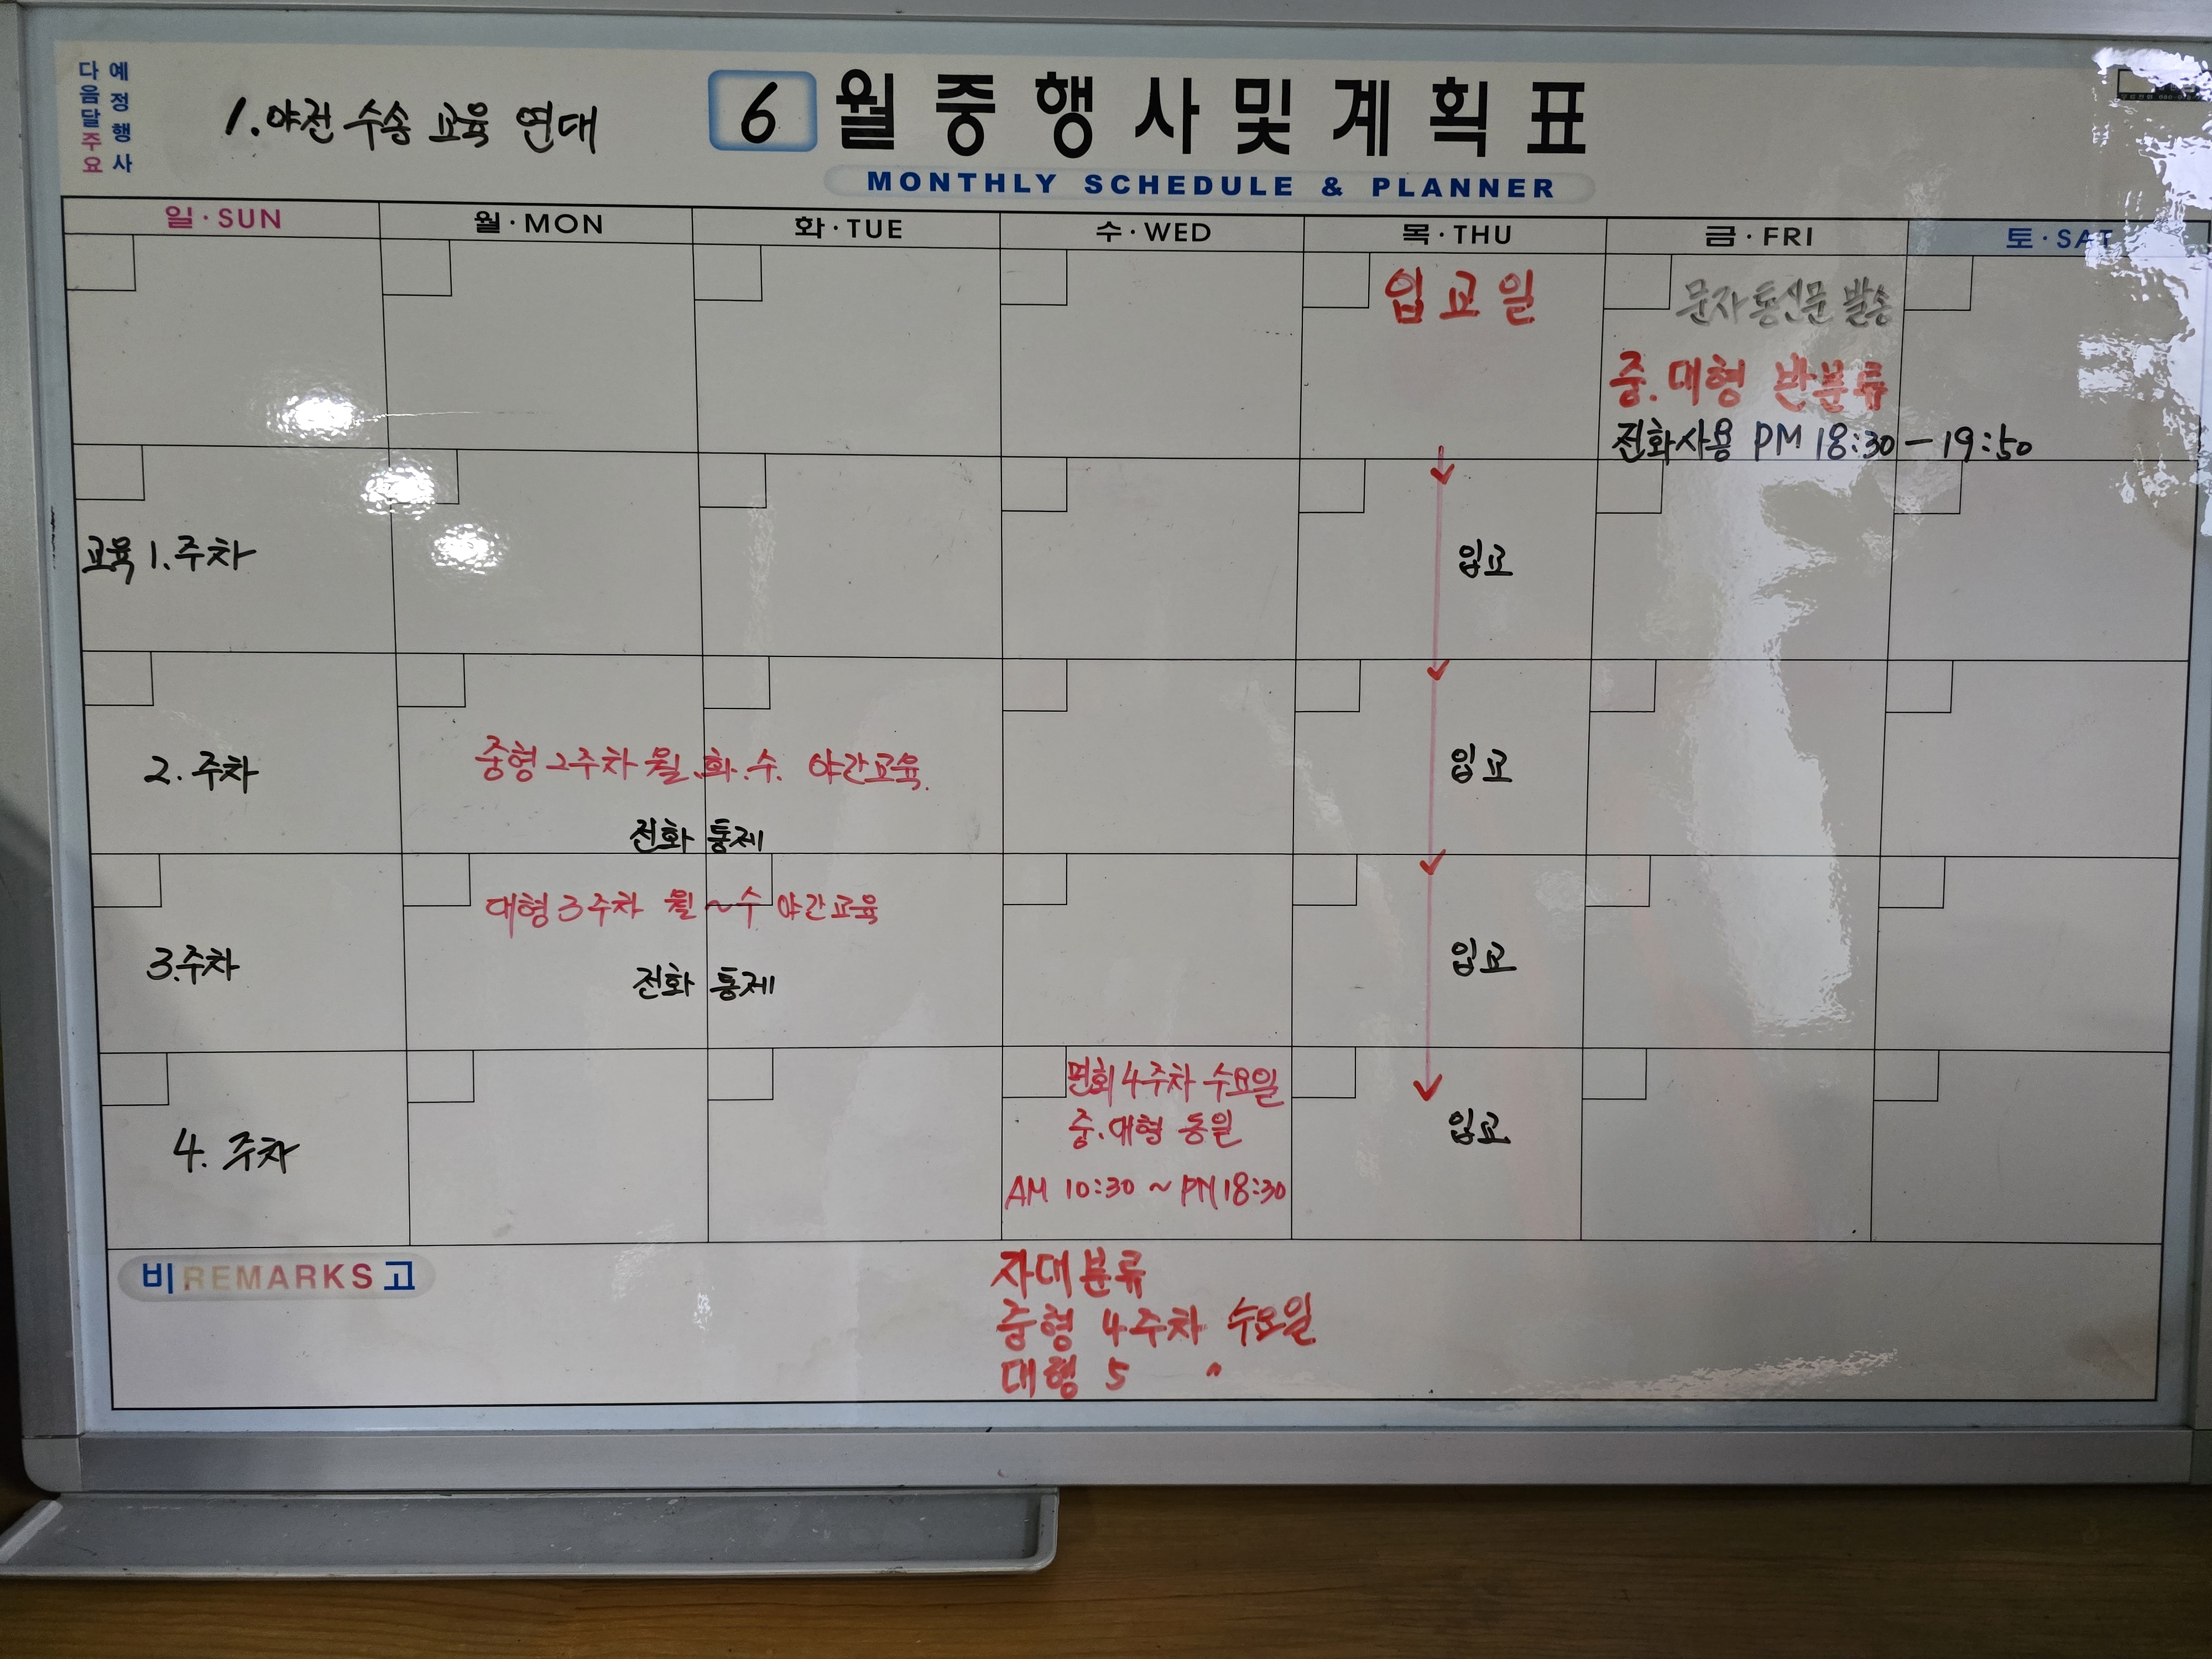 다음달주요
예정행사
1. 야전 수송 교육 연대
6 월중행사및계획표
MONTHLY SCHEDULE & PLANNER
일·SUN 월·MON 화·TUE 수·WED 목·THU 금·FRI 토·SAT
입교일
문자통신문 발송
중.대형 반분류
전화사용 PM 18:30 - 19:50
교육 1.주차
입교
2. 주차
중형 2주차 월.화.수. 야간교육.
전화 통제
입교
3.주차
대형 3주차 월~수 야간교육
전화 통제
입교
4. 주차
면회 4주차 수요일
중.대형 동일
AM 10:30 ~ PM 18:30
입교
비 REMARKS 고
자대분류
중형 4주차 수요일
대형 5 〃